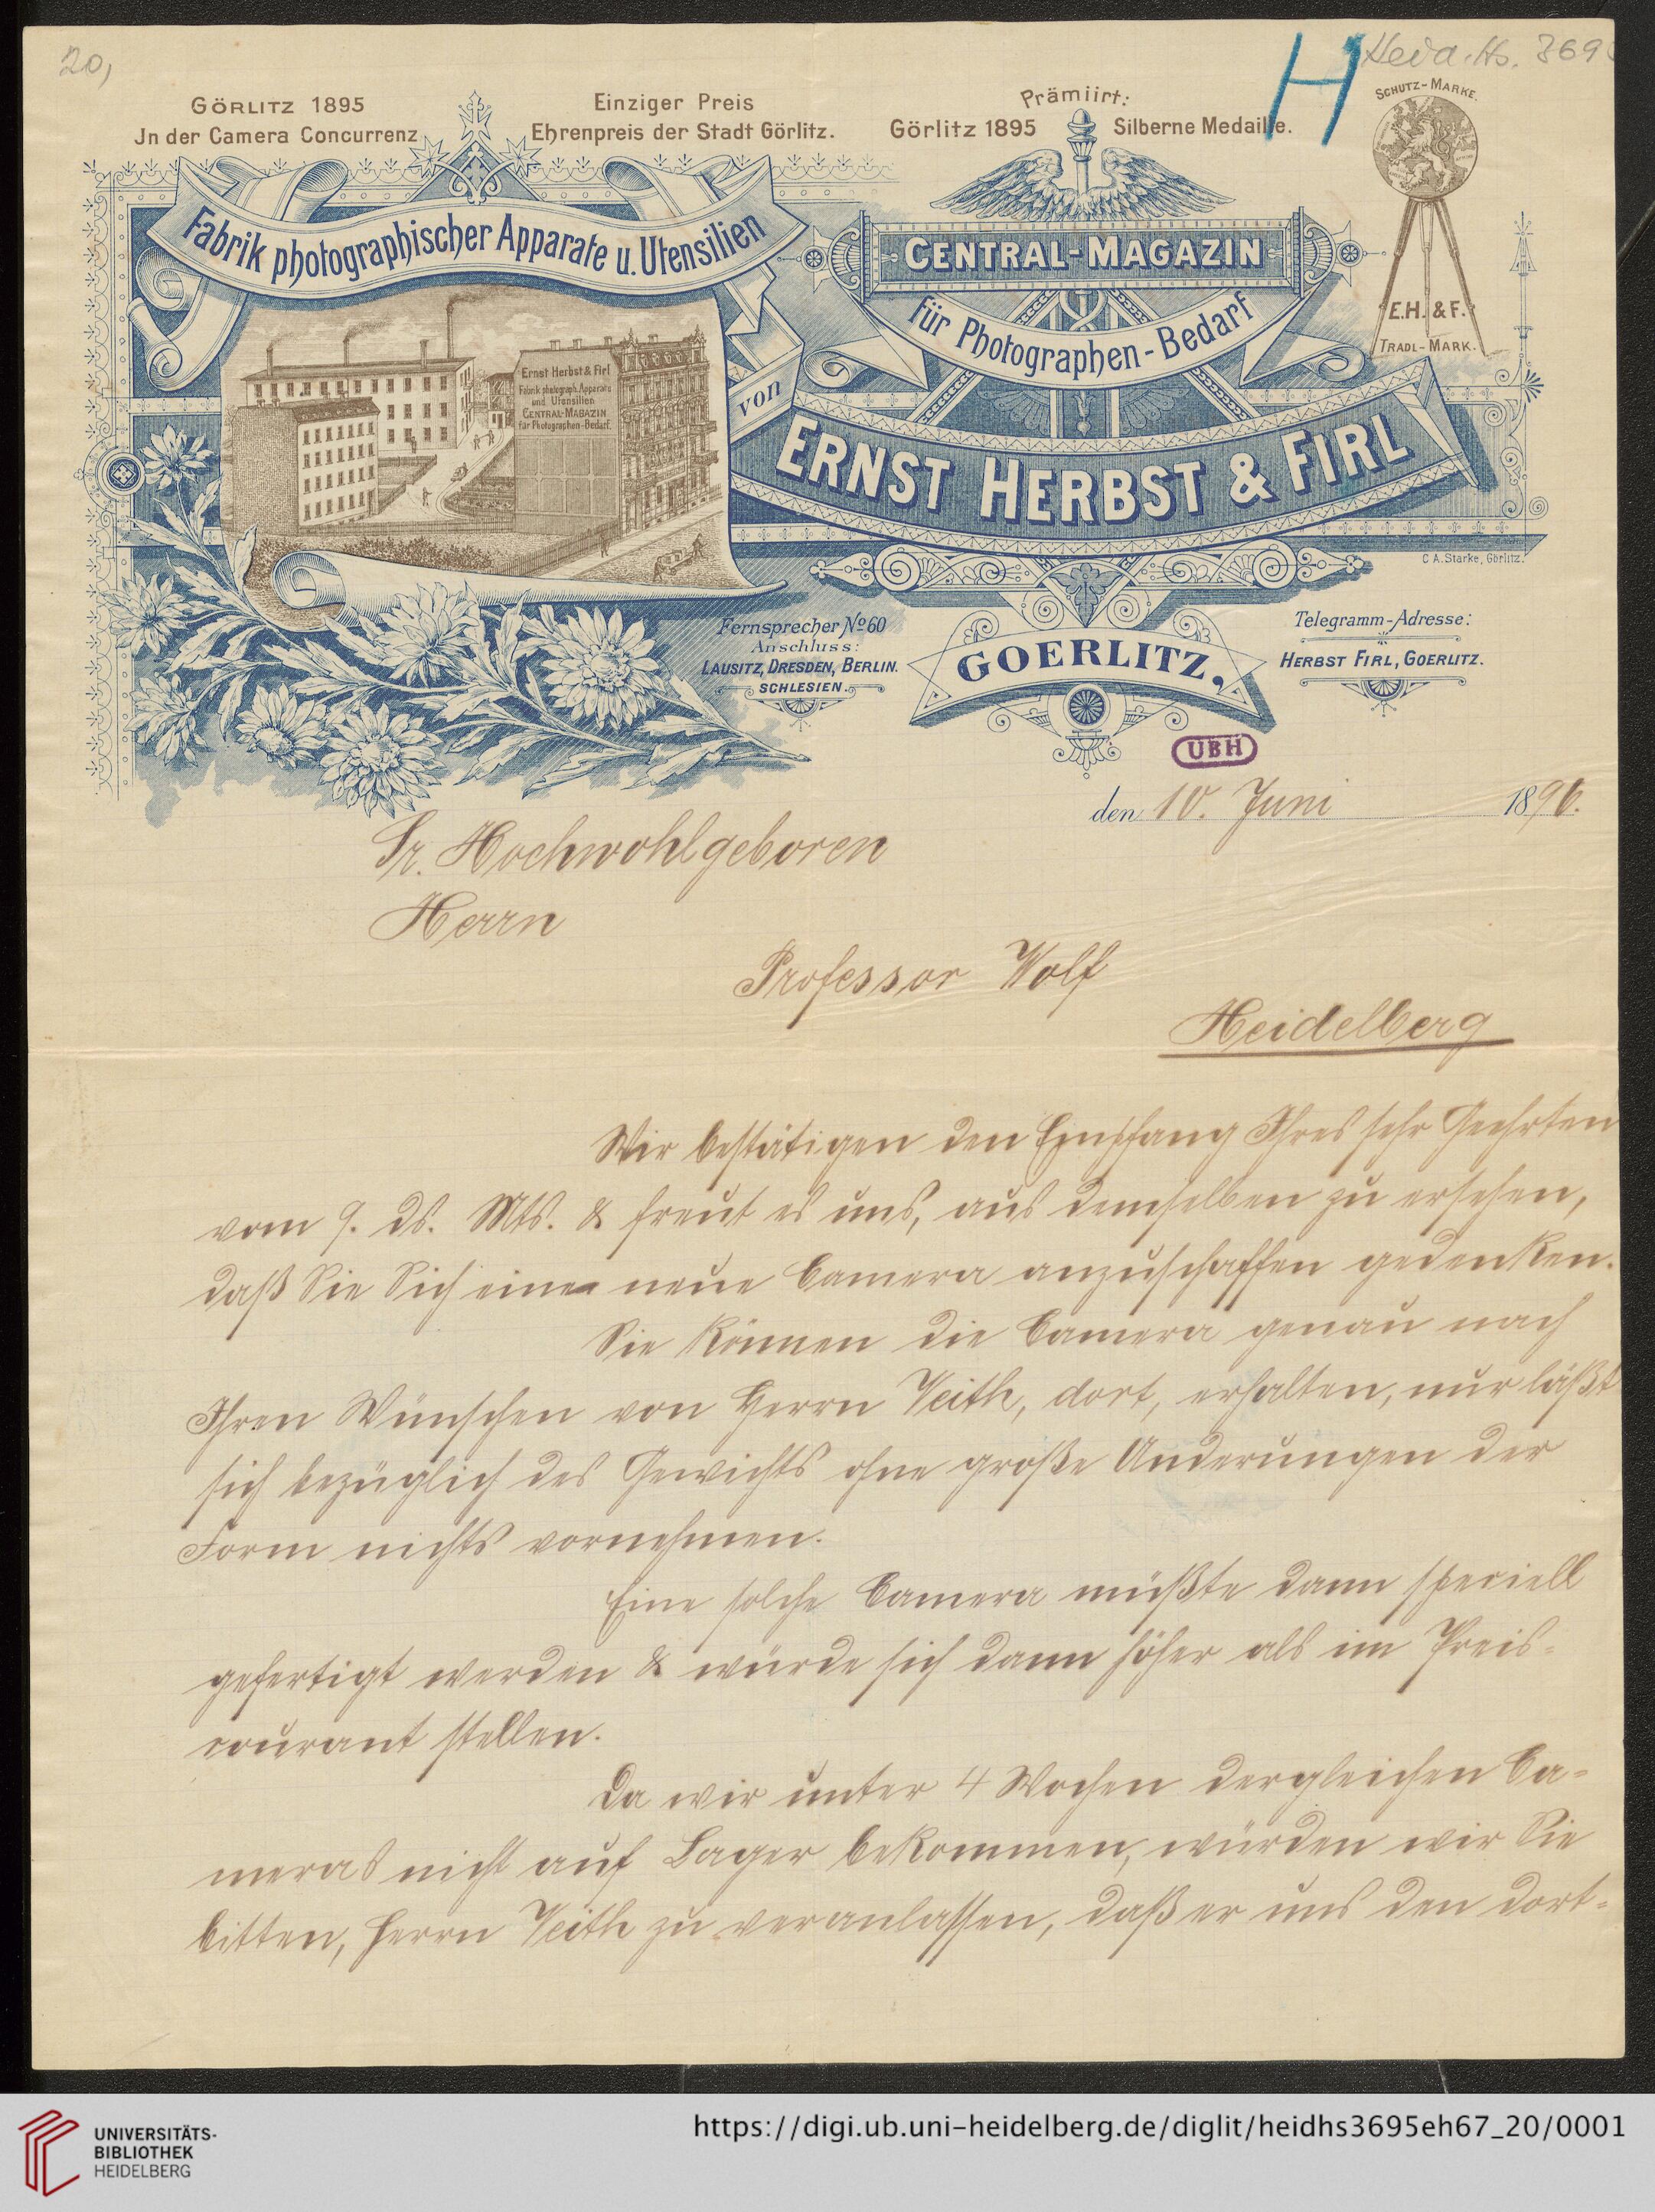 20,
Heid. Hs. 369
H
GÖRLITZ 1895
Jn der Camera Concurrenz
Einziger Preis
Ehrenpreis der Stadt Görlitz.
Prämiirt:
Görlitz 1895 Silberne Medaille.
SCHUTZ-MARKE.
E.H. & F.
TRADL-MARK.
Fabrik photographischer Apparate u. Utensilien
CENTRAL-MAGAZIN
für Photographen-Bedarf
von
ERNST HERBST & FIRL
Ernst Herbst & Firl
Fabrik photograph. Apparate
und Utensilien
CENTRAL-MAGAZIN
für Photographen-Bedarf.
C A. Starke, Görlitz.
Fernsprecher No 60
Anschluss:
LAUSITZ, DRESDEN, BERLIN.
SCHLESIEN.
GOERLITZ,
Telegramm-Adresse:
HERBST FIRL, GOERLITZ.
UBH
den 10. Juni 1896.
Sr. Hochwohlgeboren
Herrn
Professor Wolf
Heidelberg
Wir bestätigen den Empfang Ihres sehr Geehrten
vom 9. ds. Mts. & freut es uns, aus demselben zu ersehen,
daß Sie Sich eine neue Camera anzuschaffen gedenken.
Sie können die Camera genau nach
Ihren Wünschen von Herrn Veith, dort, erhalten, nur läßt
sich bezüglich des Gewichts ohne große Änderungen der
Form nichts vornehmen.
Eine solche Camera müßte dann speciell
gefertigt werden & würde sich dann höher als im Preis-
courant stellen.
Da wir unter 4 Wochen dergleichen Ca-
meras nicht auf Lager bekommen, würden wir Sie
bitten, Herrn Veith zu veranlassen, daß er uns den dort-
UNIVERSITÄTS-
BIBLIOTHEK
HEIDELBERG
https://digi.ub.uni-heidelberg.de/diglit/heidhs3695eh67_20/0001